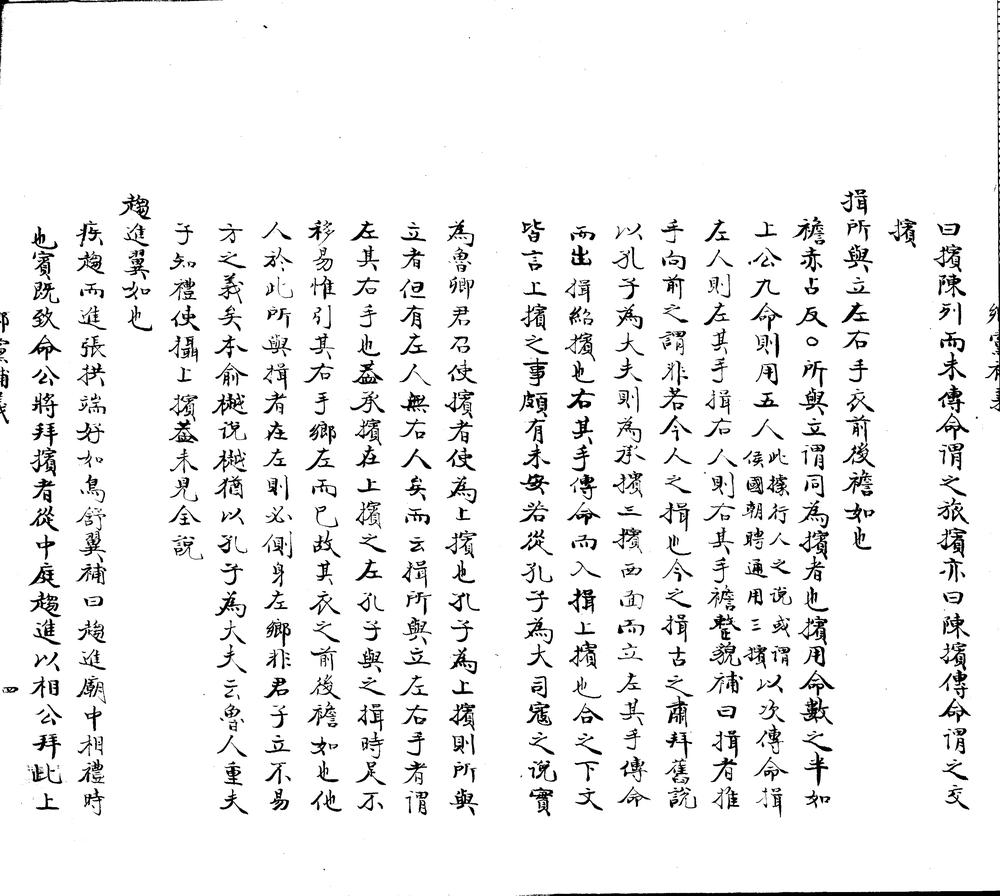 曰擯陳列而未傳命謂之旅擯亦曰陳擯傳命謂之交
擯
揖所與立左右手衣前後襜如也
襜赤占反○所與立謂同為擯者也擯用命數之半如
上公九命則用五人此據行人之說或謂侯國朝聘通用三擯以次傳命揖
左人則左其手揖右人則右其手襜整貌補曰揖者推
手向前之謂非若今人之揖也今之揖古之肅拜舊說
以孔子為大夫則為承擯三擯西面而立左其手傳命
而出揖紹擯也右其手傳命而入揖上擯也合之下文
皆言上擯之事頗有未安若從孔子為大司寇之說實
為魯卿君召使擯者使為上擯也孔子為上擯則所與
立者但有左人無右人矣而云揖所與立左右手者謂
左其右手也蓋承擯在上擯之左孔子與之揖時足不
移易惟引其右手鄉左而已故其衣之前後襜如也他
人於此所與揖者在左則必側身左鄉非君子立不易
方之義矣本俞樾說樾猶以孔子為大夫云魯人重夫
子知禮使攝上擯蓋未見全說
趨進翼如也
疾趨而進張拱端好如鳥舒翼補曰趨進廟中相禮時
也賓既致命公將拜擯者從中庭趨進以相公拜此上
四